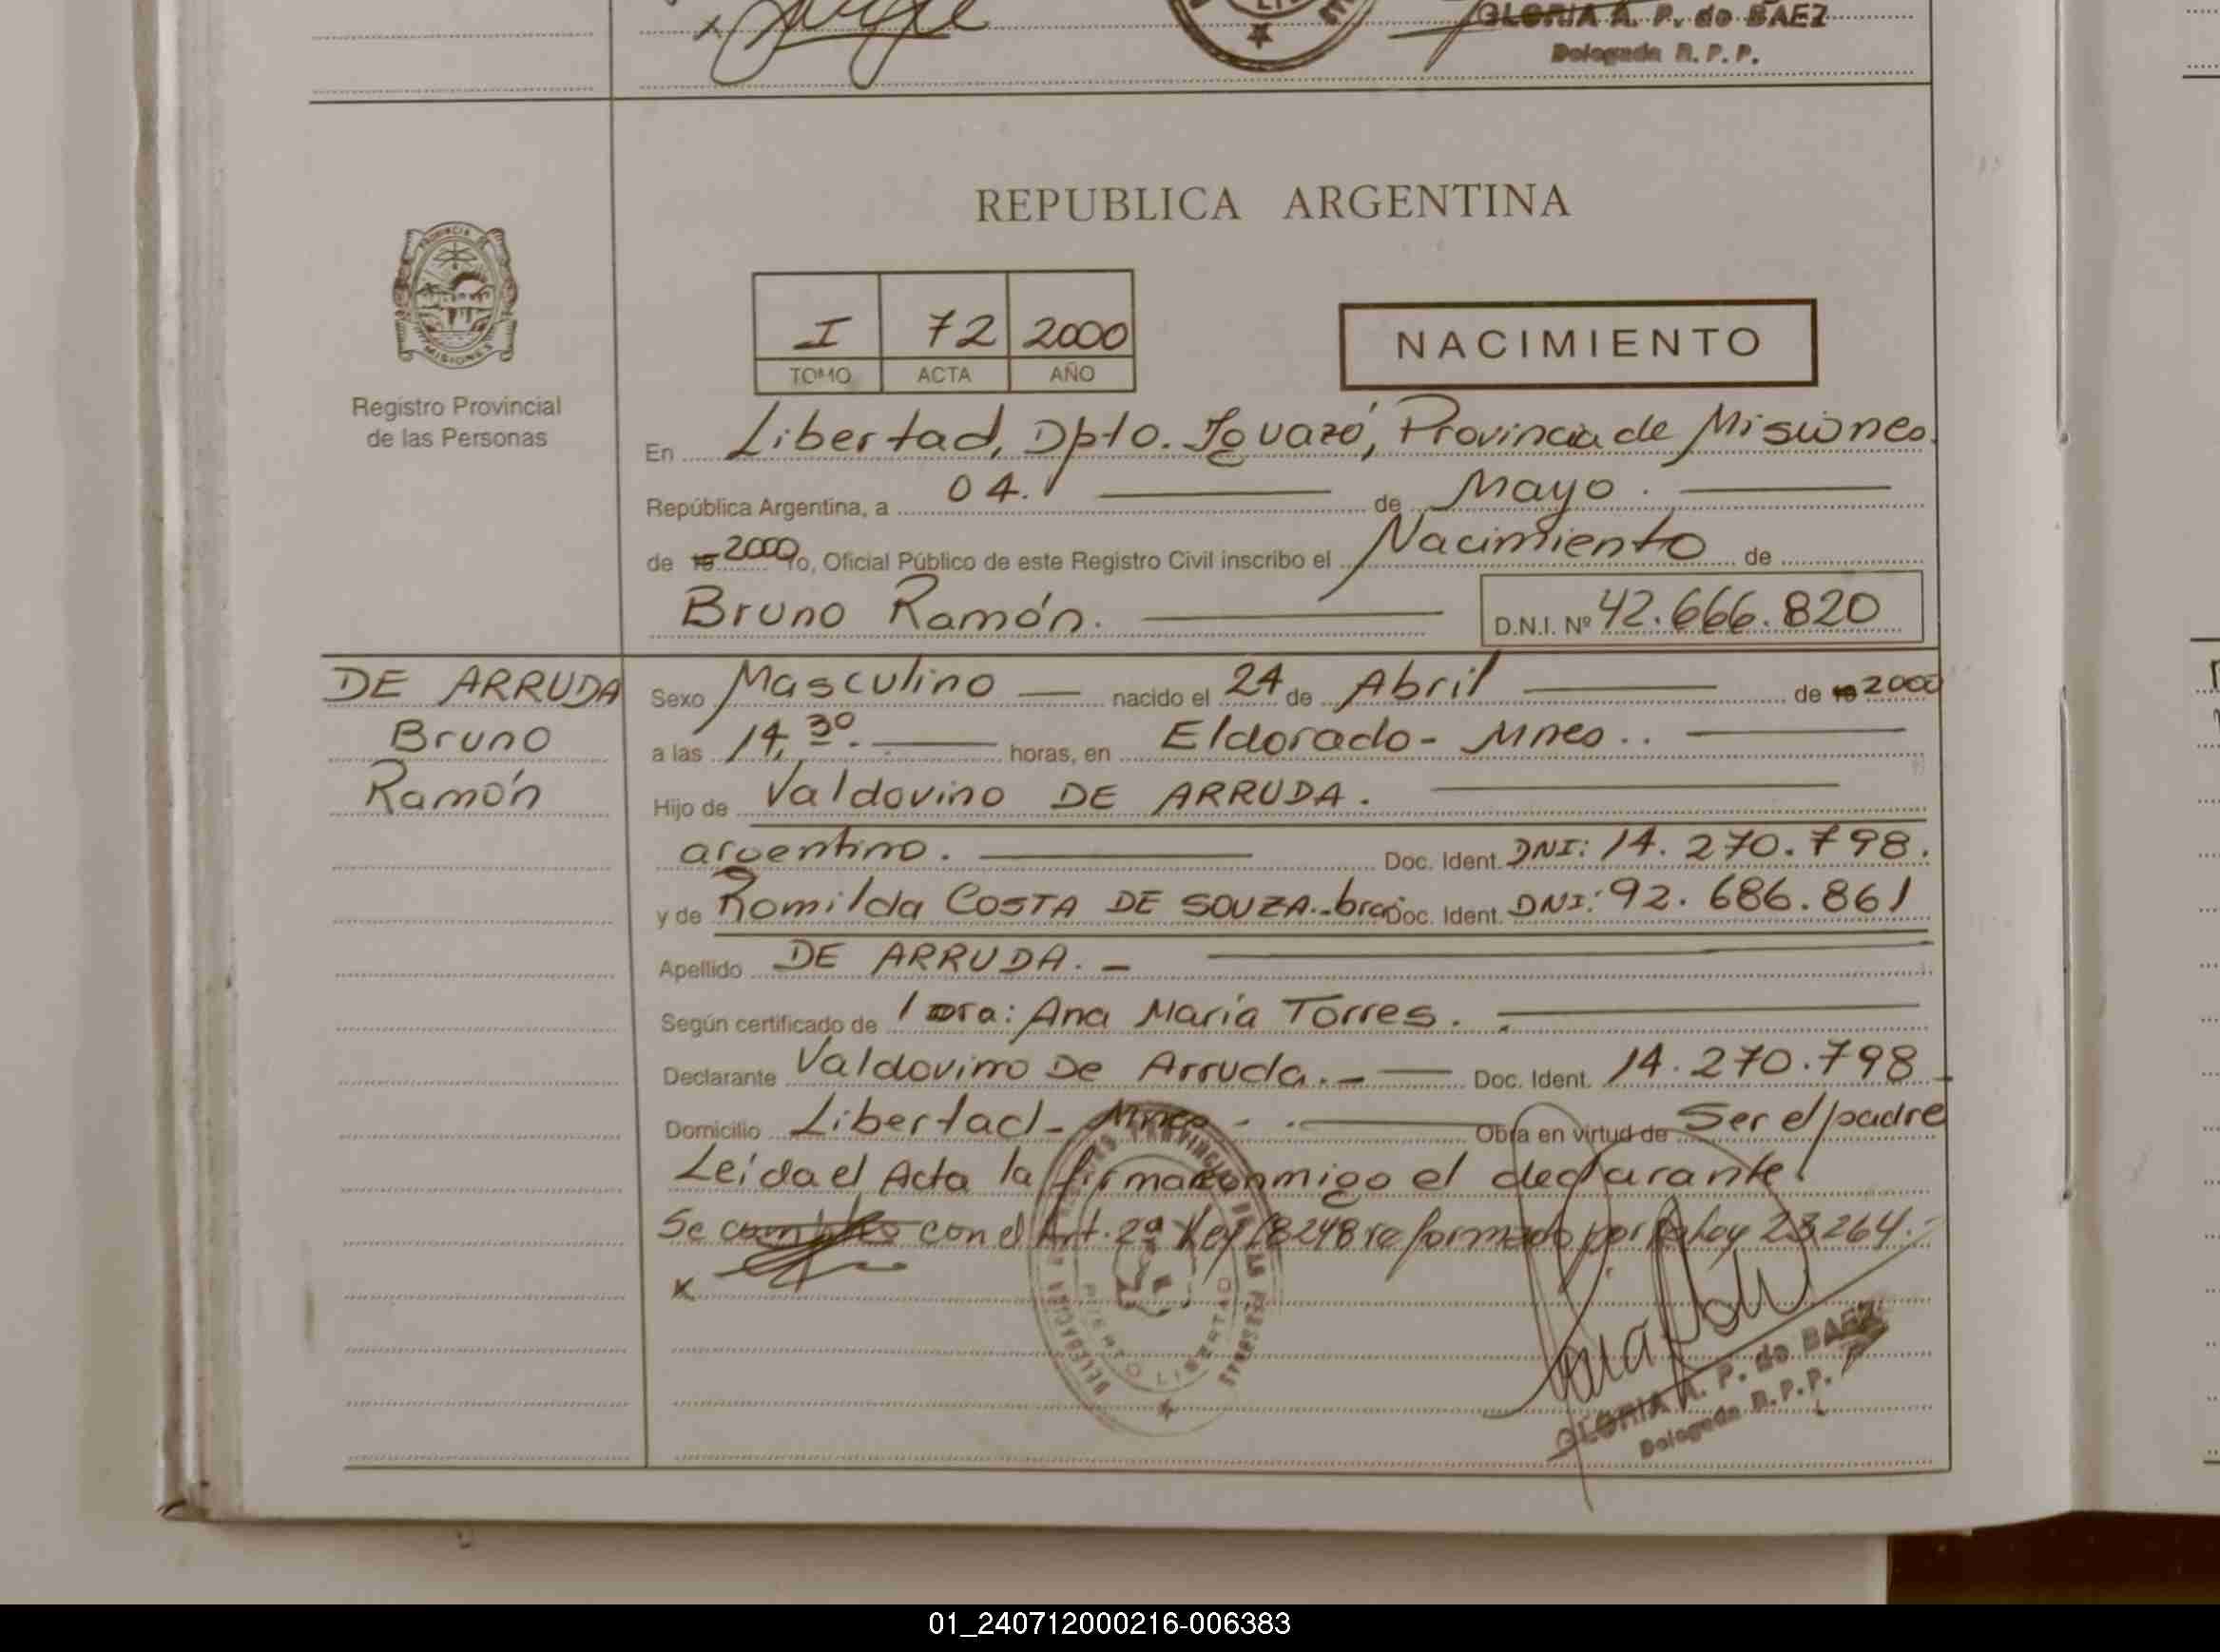 GLORIA A. P. de BAEZ
Delegada R. P. P.
REPUBLICA ARGENTINA
PROVINCIA DE
MISIONES
I 72 2000
TOMO ACTA AÑO
NACIMIENTO
Registro Provincial
de las Personas
En Libertad, Dpto. Iguazú, Provincia de Misiones.
República Argentina, a 04. de Mayo.
de 19 2000 Yo, Oficial Público de este Registro Civil inscribo el Nacimiento de
Bruno Ramón. D.N.I. Nº 42.666.820
DE ARRUDA
Bruno
Ramón
Sexo Masculino nacido el 24 de Abril de 19 2000
a las 14,30. horas, en Eldorado - Mnes..
Hijo de Valdovino DE ARRUDA.
argentino. Doc. Ident. DNI: 14.270.798.
y de Romilda COSTA DE SOUZA.-bras Doc. Ident. DNI: 92.686.861
Apellido DE ARRUDA. -
Según certificado de Dra: Ana María Torres.
Declarante Valdovino De Arruda. - Doc. Ident. 14.270.798
Domicilio Libertad - Mnes - . Obra en virtud de Ser el padre
Leida el Acta la firma conmigo el declarante.
Se cumplió con el Art. 2º Ley 18248 reformado por la ley 23.264.-
x
PUERTO LIBERTAD
GLORIA A. P. de BAEZ
Delegada R. P. P.
01_240712000216-006383